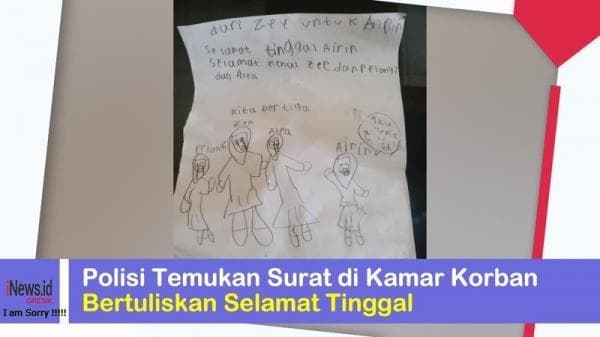 dari zee untuk Airin
Selamat tinggal Airin
Selamat kenal zee dan pelangi
dan Alea
kita bertiga
zee
pelangi
Alea
Airin
Aku
iNews.id
GRESIK
I am Sorry !!!!!
Polisi Temukan Surat di Kamar Korban
Bertuliskan Selamat Tinggal